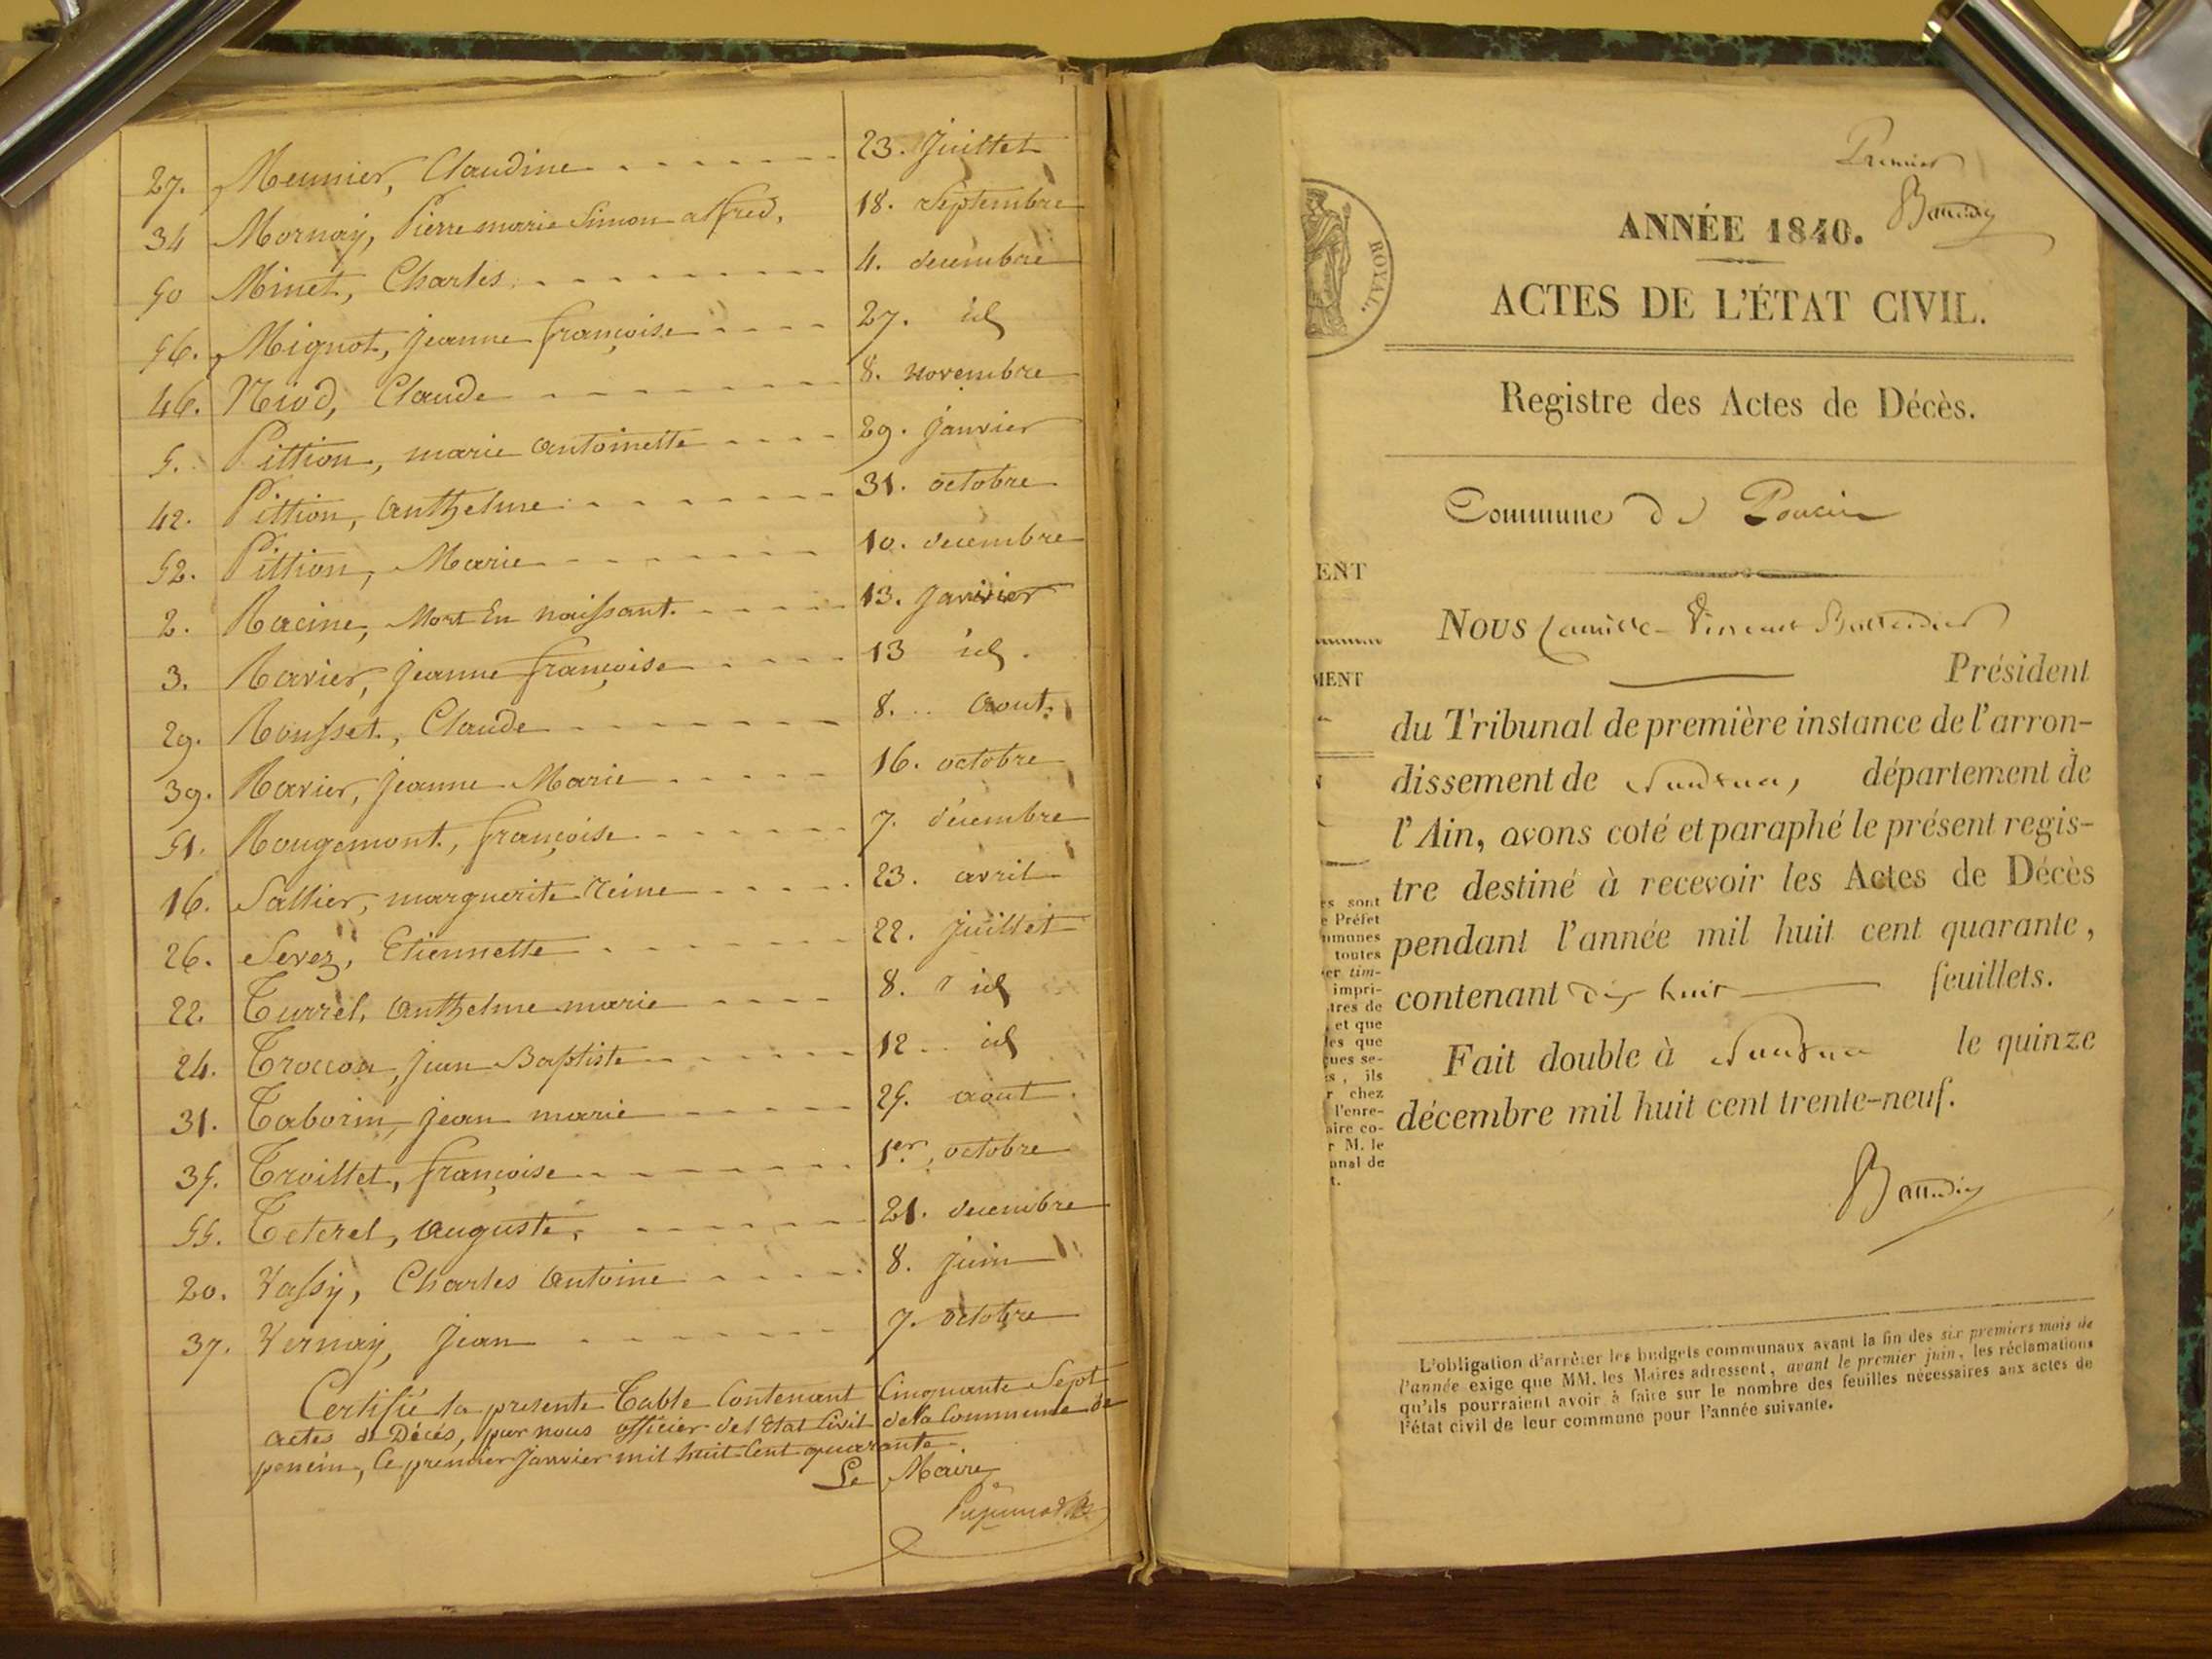 27. Meunier, Claudine 23. Juillet
34 Mornay, Pierre marie Simon alfred. 18. Septembre
50 Minet, Charles 4. decembre
56. Mignot, jeanne françoise 27. id
46. Niod, Claude 8. novembre
5. Pittion, marie antoinette 29. janvier
42. Pittion, anthelme 31. octobre
52. Pittion, Marie 10. decembre
2. Racine, Mort En naissant. 13. janvier
3. Ravier, jeanne françoise 13 id.
29. Rousset, Claude 8. aout.
39. Ravier, jeanne Marie 16. octobre
51. Rougemont, françoise 7. décembre
16. Sallier, marguerite reine 23. avril
26. Sevez, Etiennette 22. juillet
22. Turrel, anthelme marie 8. id
24. Trocon, jean Baptiste 12. id
31. Taborin, jean marie 25. aout
35. Troillet, françoise 1er. octobre
55. Teterel, auguste. 21. decembre
20. Vassy, Charles antoine 8. juin
37. Vernay, jean 7. octobre
Certifié la presente Table Contenant Cinquante Sept
actes de Décés, par nous officier de l'Etat Civil de la Commune de
poncin, le premier janvier mil huit Cent quarante.
Le Maire
Premier
ROYAL.
ANNÉE 1840.
ACTES DE L'ÉTAT CIVIL.
Registre des Actes de Décès.
Commune de Poncin
Nous Camille Vincent
Président
du Tribunal de première instance de l'arron-
dissement de Nantua, département de
l'Ain, avons coté et paraphé le présent regis-
tre destiné à recevoir les Actes de Décès
pendant l'année mil huit cent quarante,
contenant dix huit feuillets.
Fait double à Nantua le quinze
décembre mil huit cent trente-neuf.
L'obligation d'arrêter les budgets communaux avant la fin des six premiers mois de
l'année exige que MM. les Maires adressent, avant le premier juin, les réclamations
qu'ils pourraient avoir à faire sur le nombre des feuilles nécessaires aux actes de
l'état civil de leur commune pour l'année suivante.
ENT
MENT
es sont
e Préfet
mmunes
toutes
er tim-
impri-
tres de
, et que
les que
ques se-
s, ils
r chez
l'enre-
aire co-
r M. le
unal de
t.